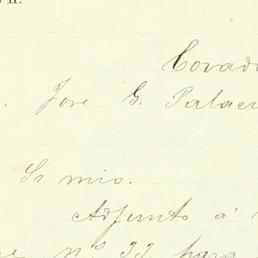 Covad
. Jose G. Palac
Sr mio.
Adjunto á
nº 32 para